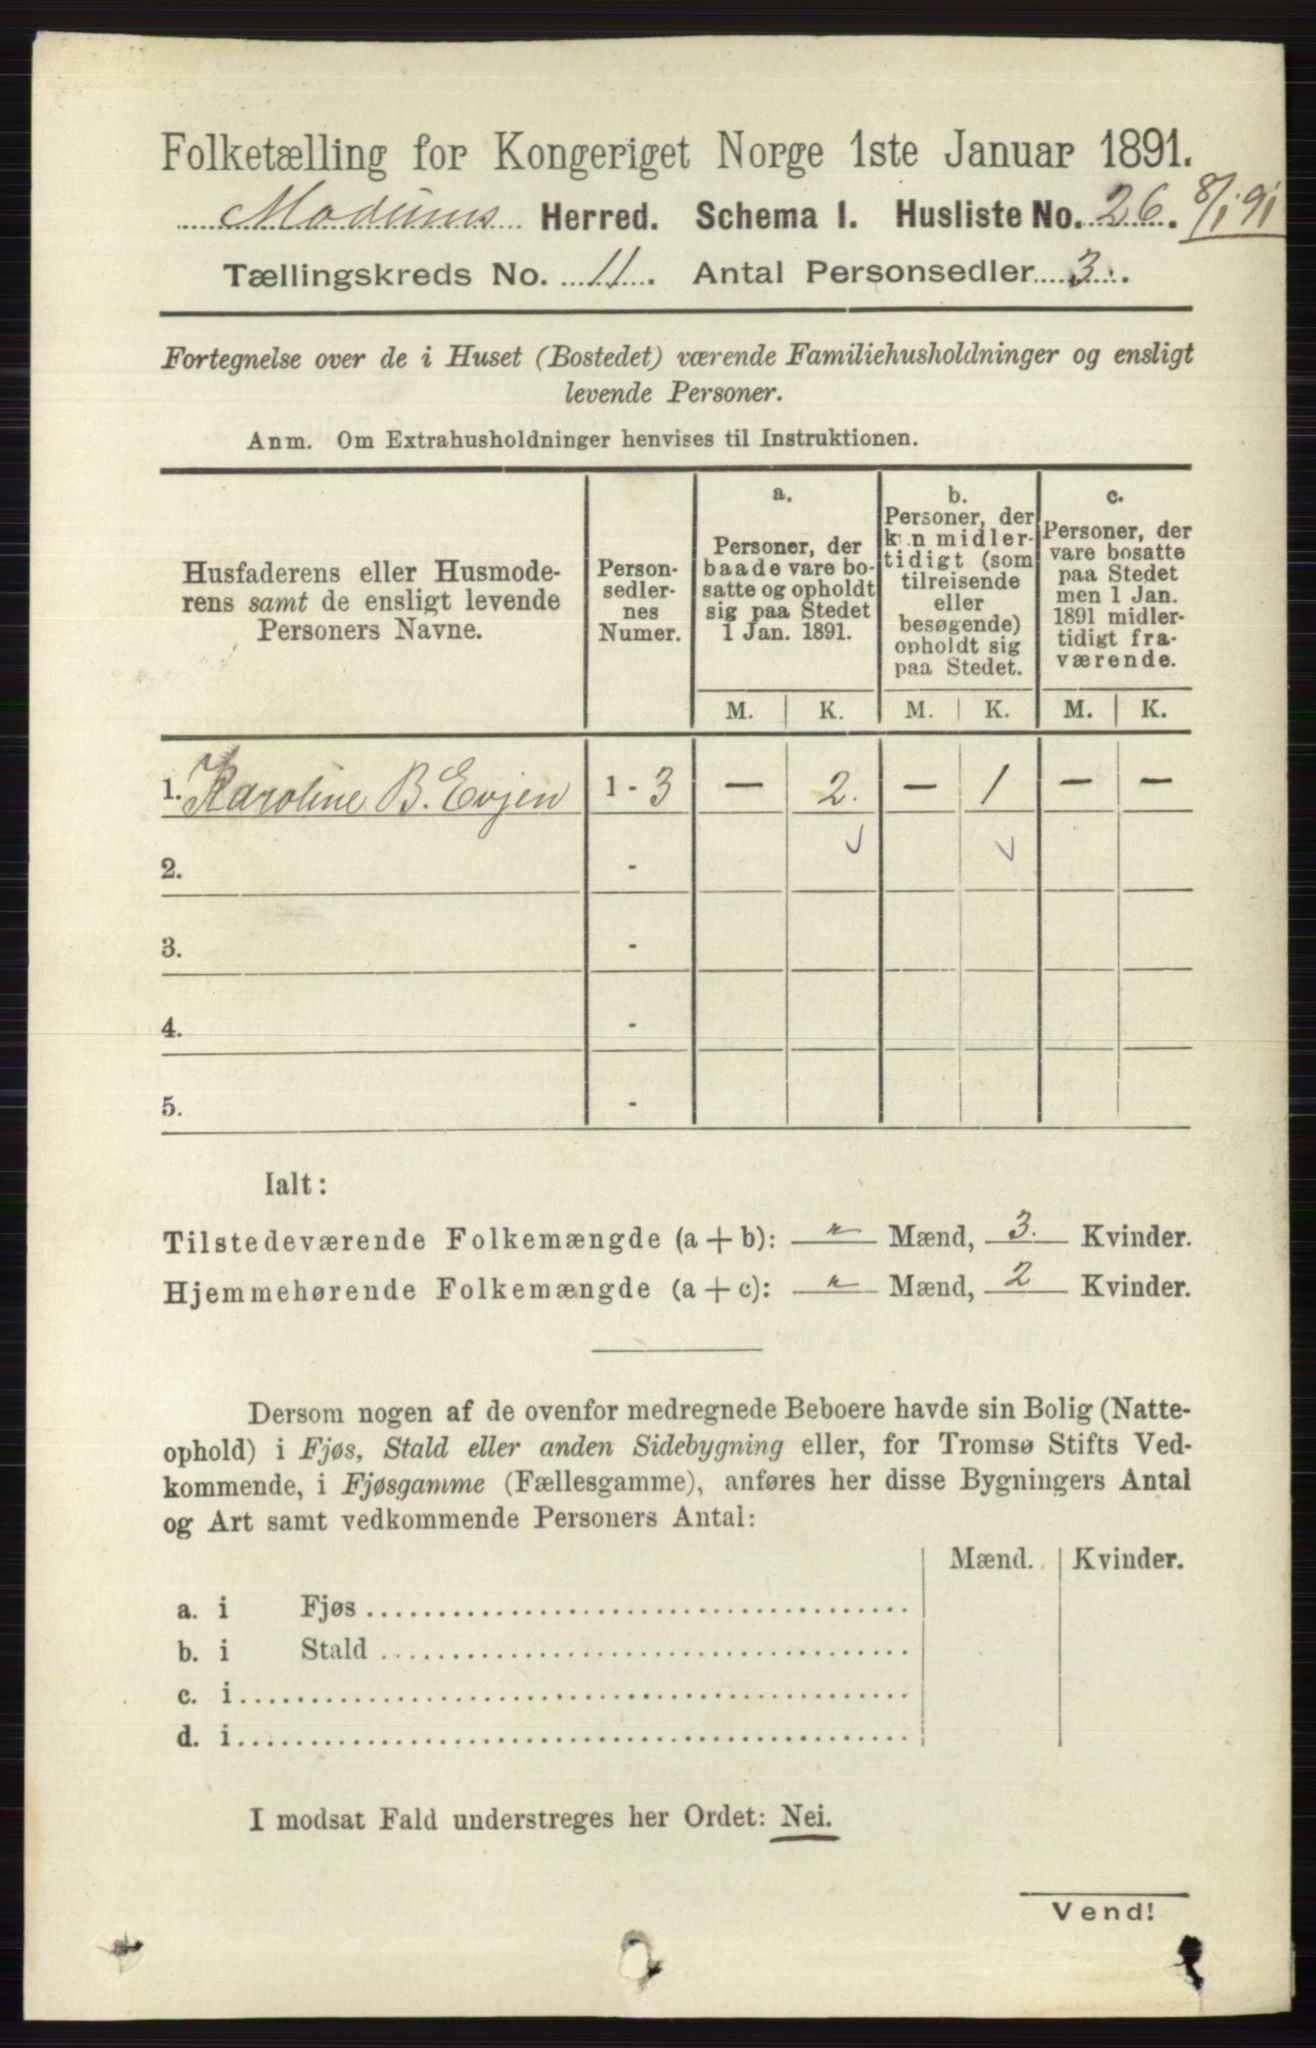 Folketælling for Kongeriget Norge 1ste Januar 1891.
Modums Herred. Schema I. Husliste No. 26. 8/1 91
Tællingskreds No. 11. Antal Personsedler 3.
Fortegnelse over de i Huset (Bostedet) værende Familiehusholdninger og ensligt
levende Personer.
Anm. Om Extrahusholdninger henvises til Instruktionen.
Husfaderens eller Husmode-
rens samt de ensligt levende
Personers Navne.
Person-
sedler-
nes
Numer.
a.
Personer, der
baade vare bo-
satte og opholdt
sig paa Stedet
1 Jan. 1891.
b.
Personer, der
kun midler-
tidigt (som
tilreisende
eller
besøgende)
opholdt sig
paa Stedet.
c.
Personer, der
vare bosatte
paa Stedet
men 1 Jan.
1891 midler-
tidigt fra-
værende.
M. K. M. K. M. K.
1. Karoline B. Evjen 1 - 3 — 2. — 1 — —
2. -
3. -
4. -
5. -
Ialt:
Tilstedeværende Folkemængde (a + b): " Mænd, 3. Kvinder.
Hjemmehørende Folkemængde (a + c): " Mænd, 2 Kvinder.
Dersom nogen af de ovenfor medregnede Beboere havde sin Bolig (Natte-
ophold) i Fjøs, Stald eller anden Sidebygning eller, for Tromsø Stifts Ved-
kommende, i Fjøsgamme (Fællesgamme), anføres her disse Bygningers Antal
og Art samt vedkommende Personers Antal:
Mænd. Kvinder.
a. i Fjøs
b. i Stald
c. i
d. i
I modsat Fald understreges her Ordet: Nei.
Vend!